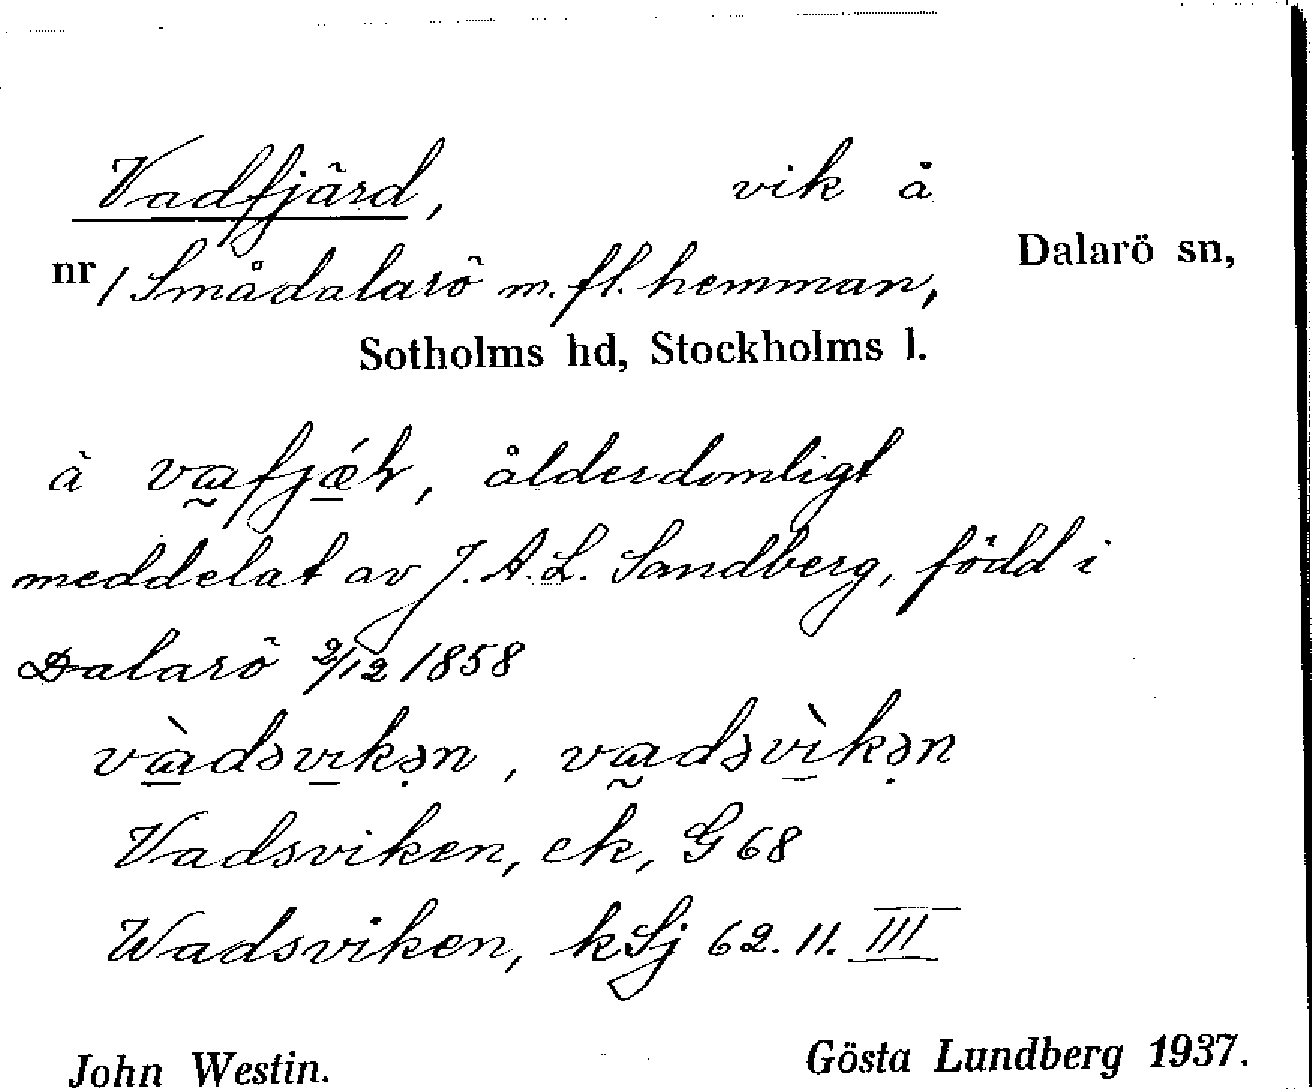 Vadfjärd, vik å
Dalarö sn,
nr 1 Smådalarö m. fl. hemman,
Sotholms hd, Stockholms l.
å vafjǽr, ålderdomligt
meddelat av J. A. L. Sandberg, född i
Dalarö 2/12 1858
vàdsvikən, vadsvìkən
Vadsviken, ek, G 68
Wadsviken, kSj 62. 11. III
John Westin. Gösta Lundberg 1937.